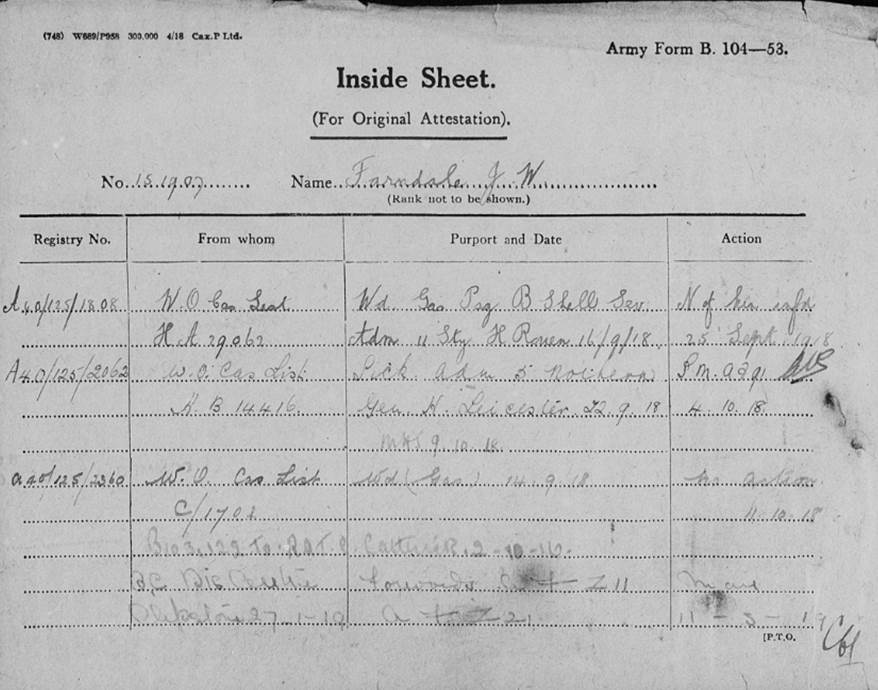 (748) W689/P958 300,000 4/18 Cax.P Ltd.
Army Form B. 104—53.
Inside Sheet.
(For Original Attestation).
No. 151907 Name Farndale J. W.
(Rank not to be shown.)
Registry No. From whom Purport and Date Action
A40/125/1808 W.O Cas List Wd Gas B Shell Sev N of Kin infd
H A 29062 Adm 11 Sty H Rouen 16/9/18 25 Sept 1918
A40/125/2062 W.O Cas List Sick adm 5 Northern
H.B 14416 Gen H. Leicester 22.9.18 4.10.18
9.10.18
A40/125/2360 W.O. Cas List Wd (Gas) 14.9.18 No action
C/1701 11.10.18
To Catterick 2-10-16
27-1-19 21 11-3-19
[P.T.O.